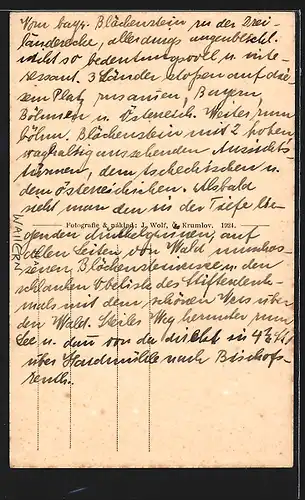 Vom bayr. Blöckenstein zu der Drei-
länderecke, allerdings augenblickl.
nicht so bedeutungsvoll u. inte-
ressant. 3 Länder stoßen auf die-
sem Platz zusammen, Bayern,
Böhmen u. Österreich. Weiter zum
böhm. Blöckenstein mit 2 hohen
waghalsig aussehenden Aussichts-
türmen, dem tschechischen u.
dem österreichischen. Alsbald
sieht man den in der Tiefe lie-
Fotografie & náklad: J. Wolf, Č. Krumlov. 1924.
genden dunkelgrünen, auf
allen Seiten von Wald umschlos-
senen Blöckensteinersee u. den
schlanken Obelisk des Stifterdenk-
mals mit dem schönen Vers über
den Wald. Steiler Weg herunter zum
See u. dann von da direkt in
über Hardmühle nach Bischofs-
reuth.